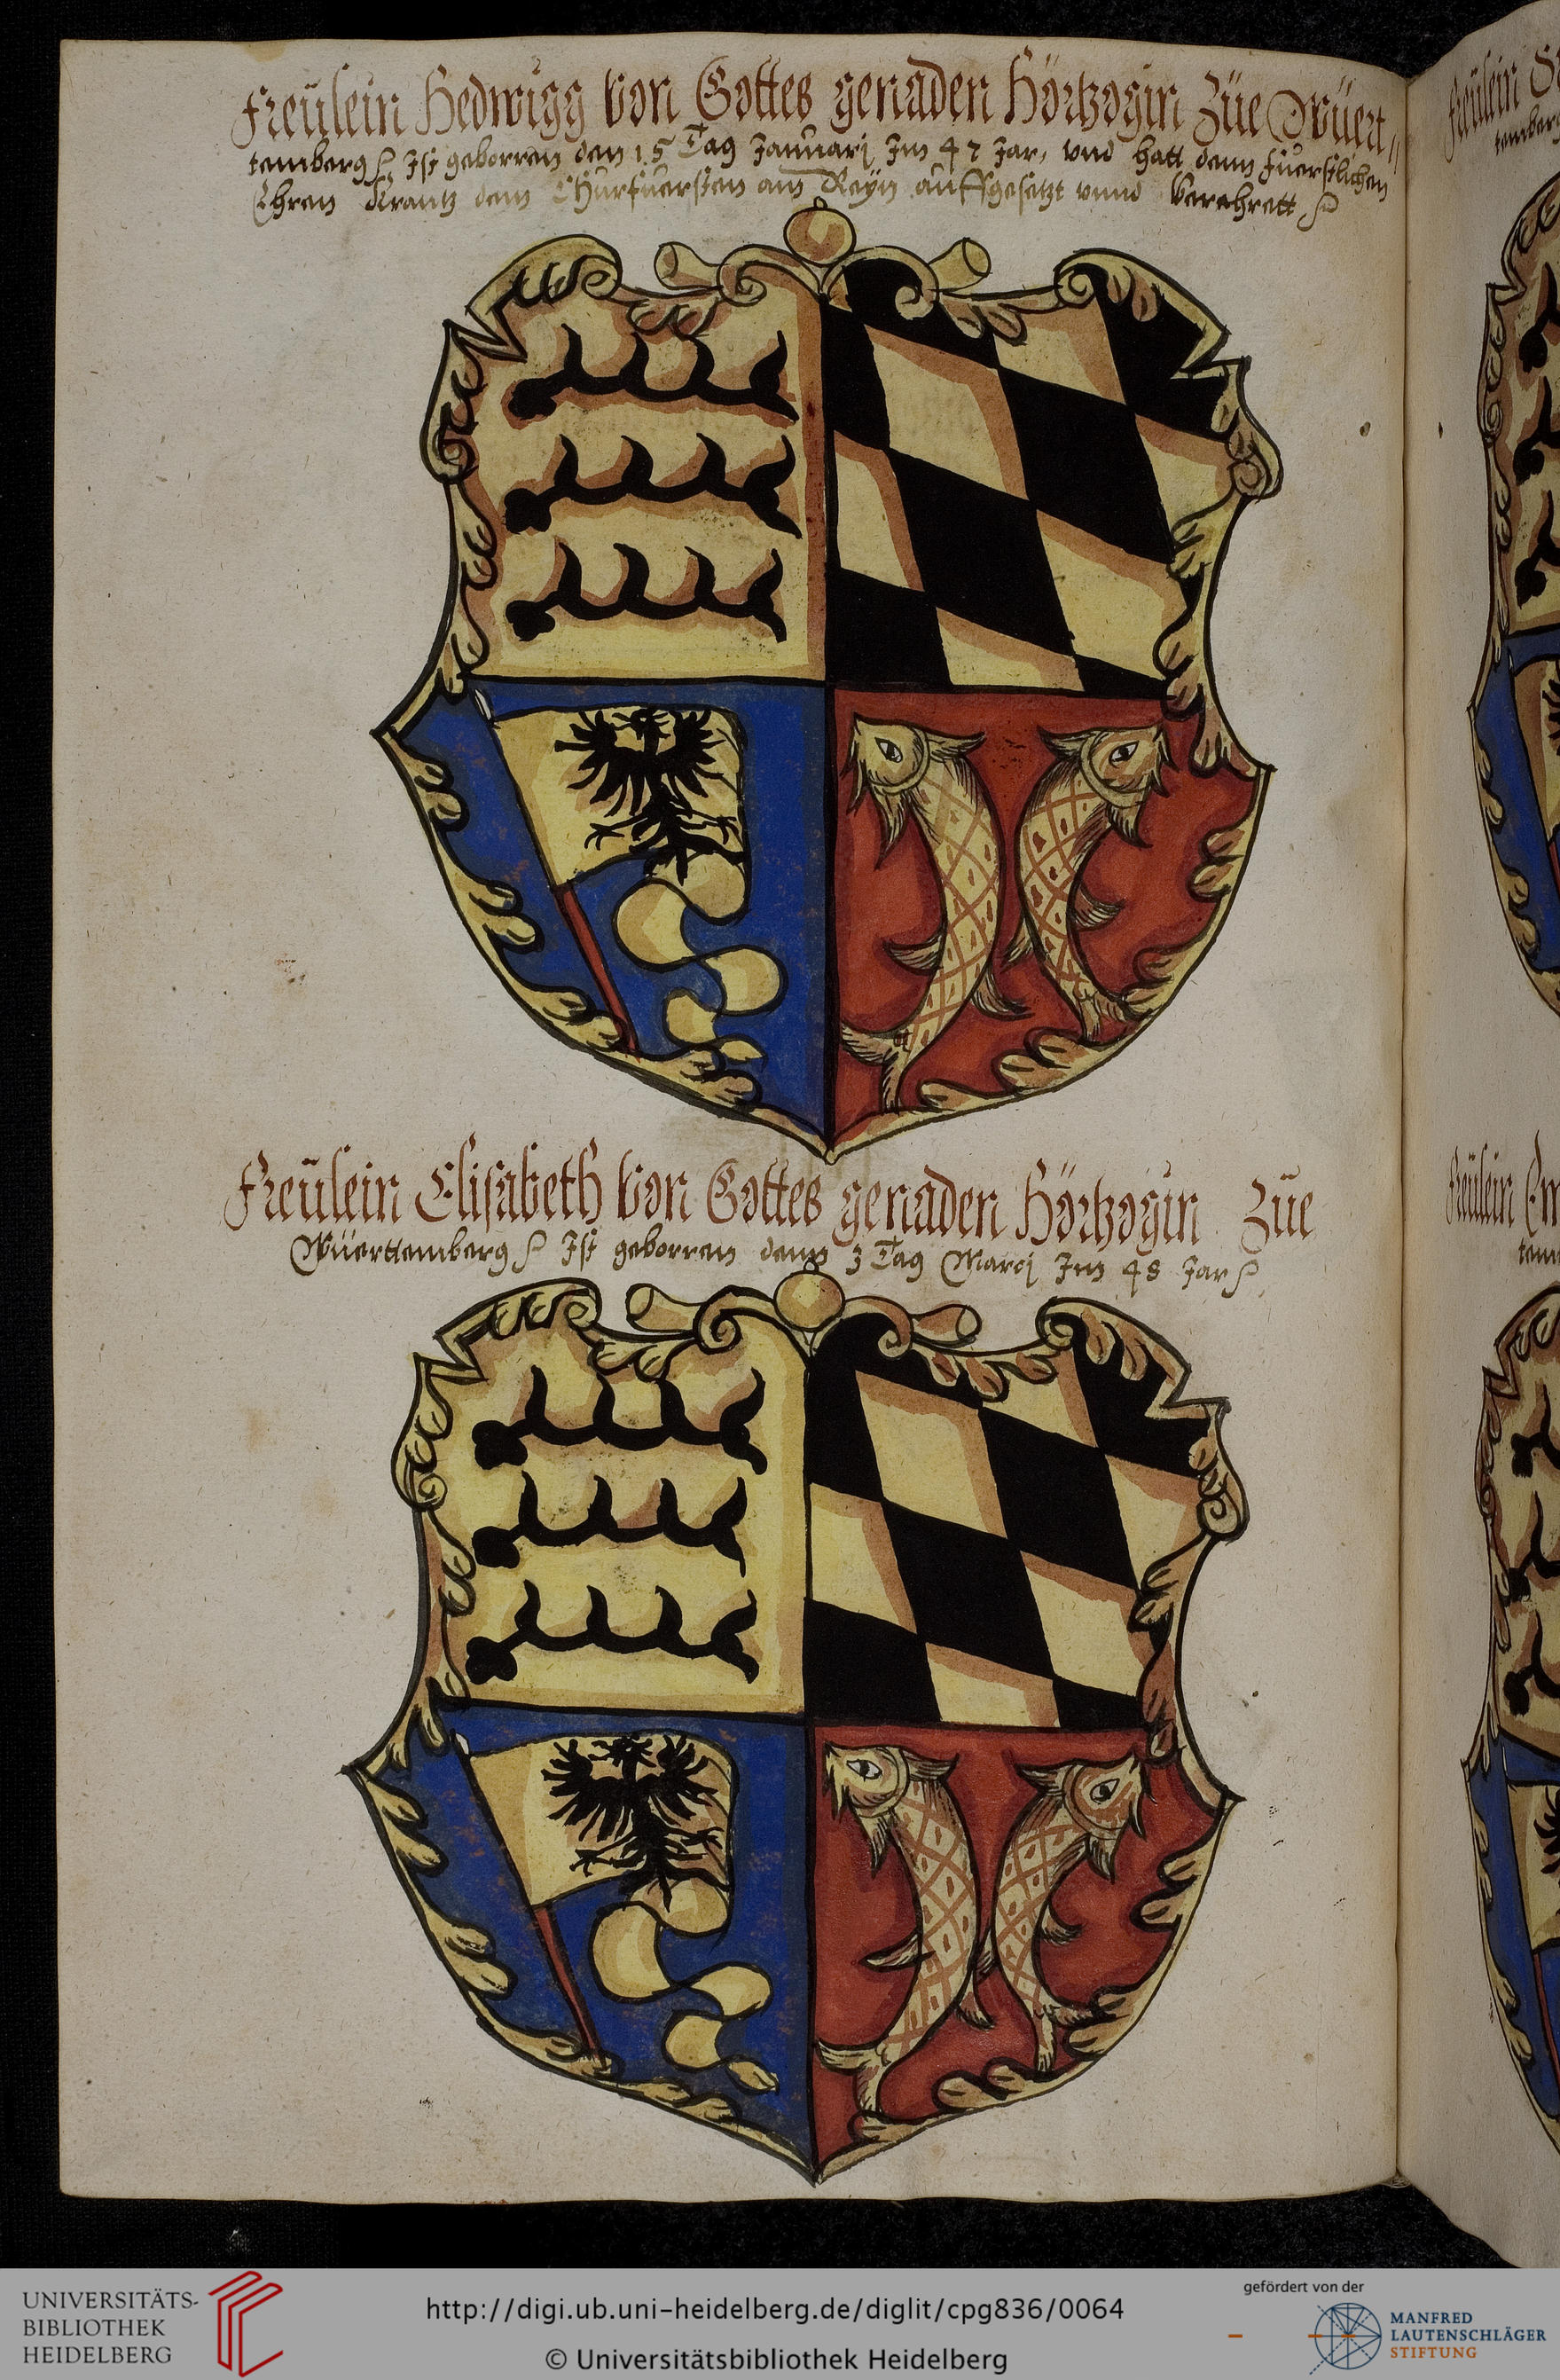 Freülein Hedwigg von Gottes genaden Hörtzogin Züe Wüert„
temberg Ist geborren den 15 Tag Januarj Im 47 Jar, vnd hatt denn fuerstlichen
Ehren Krantz dem Churfuersten am Reyn auffgesetzt vnnd Verehrett
Freülein Elisabeth von Gottes genaden Hörtzogin Züe
Wüerttemberg Ist geborren denn 3 Tag Marcj Im 48 Jar
Freülein
temberg
Freülein Em
tem
UNIVERSITÄTS-
BIBLIOTHEK
HEIDELBERG
http://digi.ub.uni-heidelberg.de/diglit/cpg836/0064
© Universitätsbibliothek Heidelberg
gefördert von der
MANFRED
LAUTENSCHLÄGER
STIFTUNG